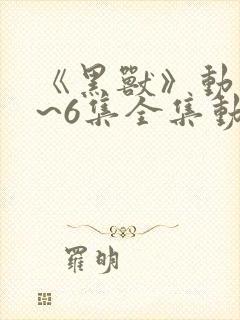 《黑獸》動
~6集全集動
羅明